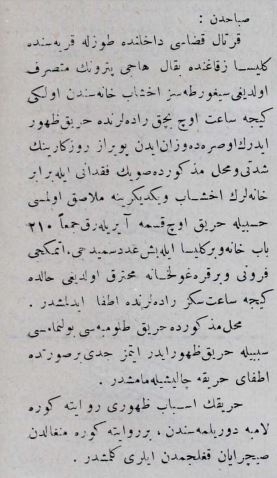 صباحدن :
قرتال قضاسی داخلنده طوزله قریه سنده
کلیسا زقاغنده بقال حاجی پترونك متصرف
اولدیغی سیغورطه سز اخشاب خانه سندن اولکی
کیجه ساعت اوچ بچق راده لرنده حریق ظهور
ایدرك اوصره ده وزان ایدن پویراز روزکارینك
شدتی و محل مذکورده صویك فقدانی ایله برابر
خانه لرك اخشاب و یکدیکرینه ملاصق اولمسی
حسبیله حریق اوچ قسمه آیریله رق جمعاً ۲۱۰
باب خانه و بر کلیسا ایله بش عدد سمیدجی، اتمکجی
فرونی و بر قره غولخانه محترق اولدیغی حالده
کیجه ساعت سکز راده لرنده اطفا ایدلمشدر .
محل مذکورده حریق طلومبه سی بولنمامسی
سببیله حریق ظهور ایدر ایتمز جدی بر صورتده
اطفای حریقه چالیشیله مامشدر .
حریقك اسباب ظهوری روایته کوره
لامبه دوریلمه سندن ، بر روایته کوره منغالدن
صیچرایان قغلجمدن ایلری کلمشدر .